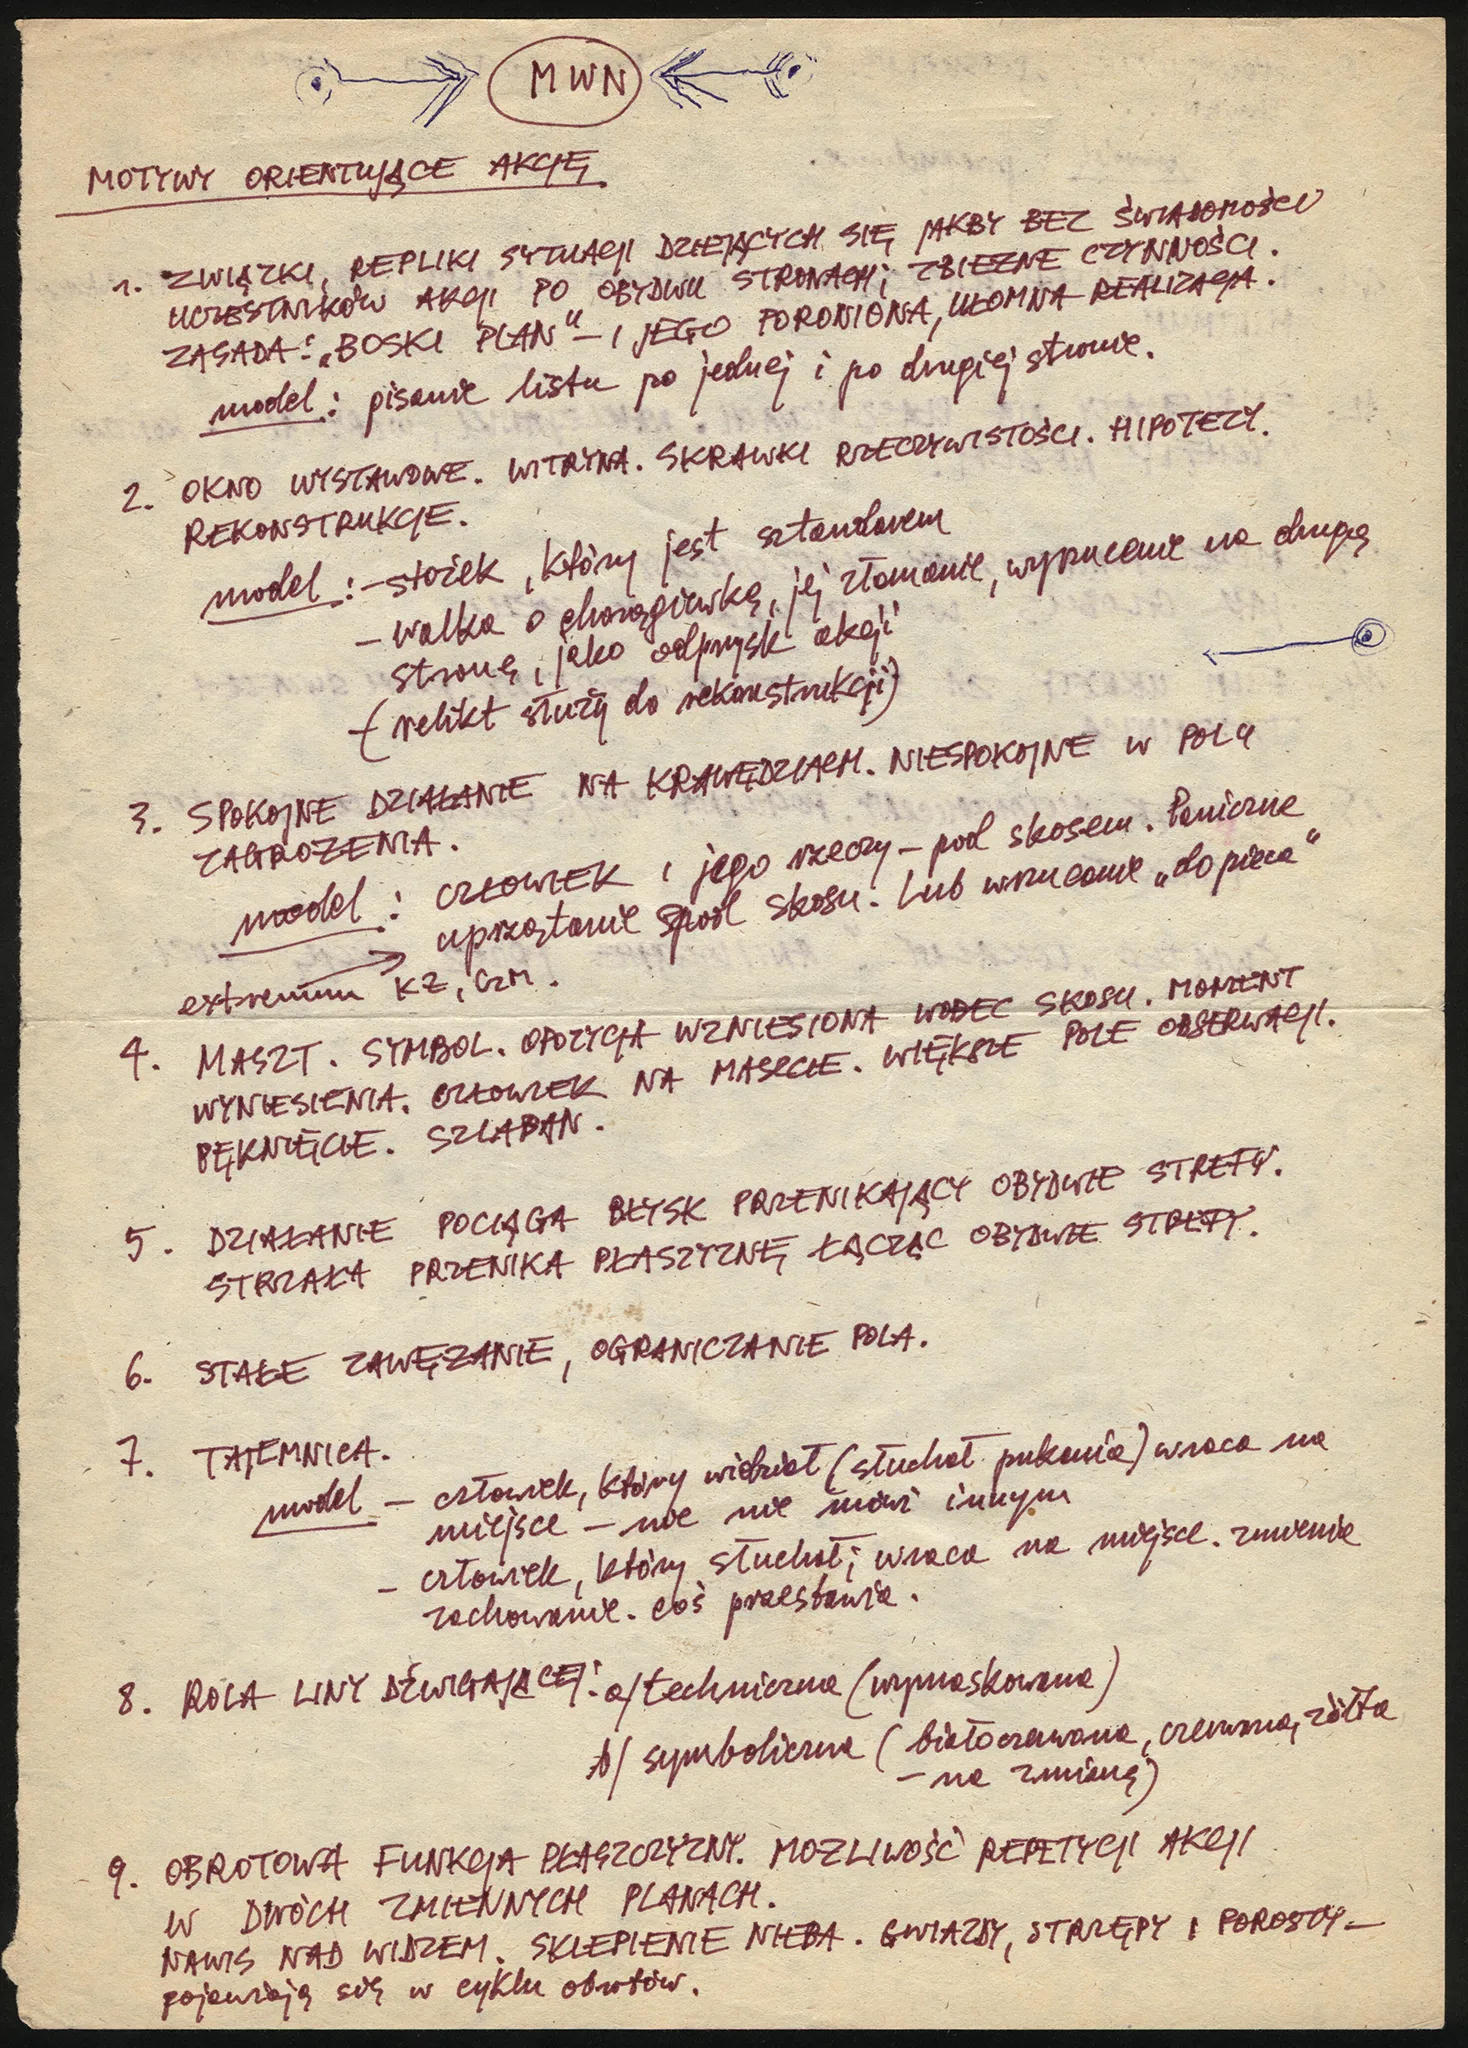 MWN
MOTYWY ORIENTUJĄCE AKCJĘ
1. ZWIĄZKI, REPLIKI SYTUACJI DZIEJĄCYCH SIĘ JAKBY BEZ ŚWIADOMOŚCI
UCZESTNIKÓW AKCJI PO OBYDWU STRONACH; ZBIEŻNE CZYNNOŚCI.
ZASADA: „BOSKI PLAN" – I JEGO PORONIONA, UŁOMNA REALIZACJA.
model: pisanie listu po jednej i po drugiej stronie.
2. OKNO WYSTAWOWE. WITRYNA. SKRAWKI RZECZYWISTOŚCI. HIPOTEZY.
REKONSTRUKCJE.
model: – stożek, który jest sztandarem
– walka o chorągiewkę, jej złamanie, wyrzucenie na drugą
stronę, jako odprysk akcji
– (relikt służy do rekonstrukcji)
3. SPOKOJNE DZIAŁANIE NA KRAWĘDZIACH. NIESPOKOJNE W POLU
ZAGROŻENIA.
model: CZŁOWIEK i jego rzeczy – pod skosem. Paniczne
uprzątanie spod skosu. Lub wrzucanie „do pieca"
extremum KZ, CZM.
4. MASZT. SYMBOL. OPOZYCJA WZNIESIONA WOBEC SKOSU. MOMENT
WYNIESIENIA. CZŁOWIEK NA MASZCIE. WIĘKSZE POLE OBSERWACJI.
PĘKNIĘCIE. SZLABAN.
5. DZIAŁANIE POCIĄGA BŁYSK PRZENIKAJĄCY OBYDWIE STREFY.
STRZAŁA PRZENIKA PŁASZYZNĘ ŁĄCZĄC OBYDWIE STREFY.
6. STAŁE ZAWĘŻANIE, OGRANICZANIE POLA.
7. TAJEMNICA.
model – człowiek, który widział (słuchał pukania) wraca na
miejsce – nic nie mówi innym
– człowiek, który słuchał; wraca na miejsce. zmienia
zachowanie. coś przestawia.
8. ROLA LINY DŹWIGAJĄCEJ: a/ techniczna (wymaskowana)
b/ symboliczna (białoczerwona, czerwona, żółta
– na zmianę)
9. OBROTOWA FUNKCJA PŁASZCZYZNY. MOŻLIWOŚĆ REPETYCJI AKCJI
W DWÓCH ZMIENNYCH PLANACH.
NAWIS NAD WIDZEM. SKLEPIENIE NIEBA. GWIAZDY, STRZĘPY I POROSTY –
pojawiają się w cyklu obrotów.